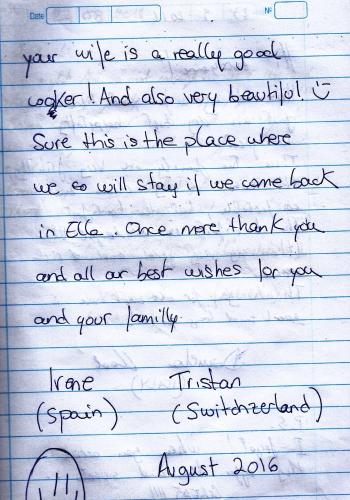 Date
Nº
your wife is a really good
cooker! And also very beautiful! :)
Sure this is the place where
we so will stay if we come back
in Ella. Once more thank you
and all our best wishes for you
and your familly.
Irene Tristan
(Spain) (Switchzerland)
August 2016
11